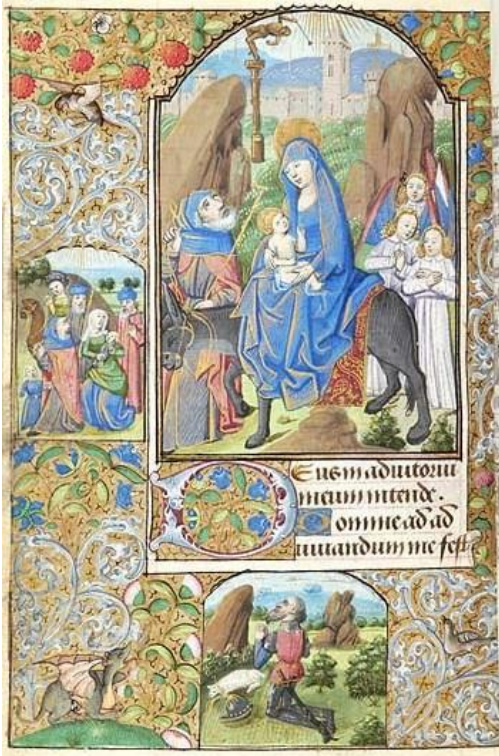 Deus in adiutoriu
meum intende.
Domine ad ad
iuuandum me fest